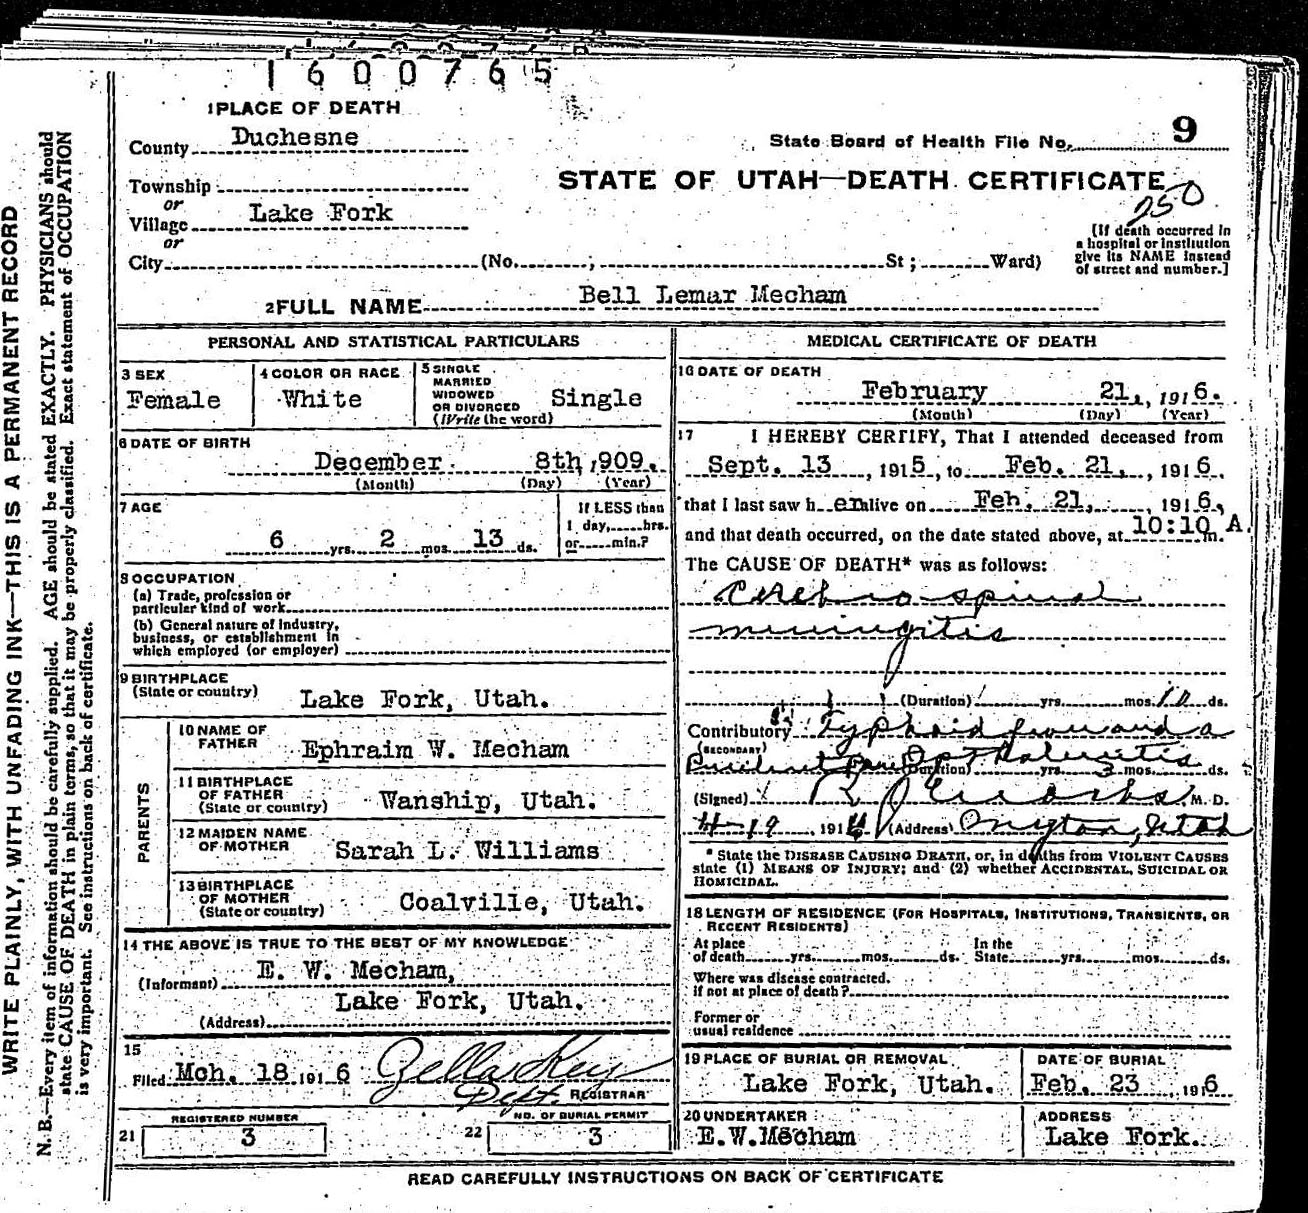 1600765
1 PLACE OF DEATH
County Duchesne
State Board of Health File No. 9
Township
or
Village Lake Fork
or
City (No. ; St ; Ward)
STATE OF UTAH—DEATH CERTIFICATE
250
[If death occurred in
a hospital or institution
give its NAME instead
of street and number.]
2 FULL NAME Bell Lemar Mecham
PERSONAL AND STATISTICAL PARTICULARS
3 SEX
Female
4 COLOR OR RACE
White
5 SINGLE
MARRIED
WIDOWED
OR DIVORCED
(Write the word)
Single
6 DATE OF BIRTH
December 8th, 1909.
(Month) (Day) (Year)
7 AGE
6 yrs. 2 mos. 13 ds.
If LESS than
1 day, hrs.
or min.?
8 OCCUPATION
(a) Trade, profession or
particular kind of work
(b) General nature of industry,
business, or establishment in
which employed (or employer)
9 BIRTHPLACE
(State or country) Lake Fork, Utah.
PARENTS
10 NAME OF
FATHER Ephraim W. Mecham
11 BIRTHPLACE
OF FATHER
(State or country) Wanship, Utah.
12 MAIDEN NAME
OF MOTHER Sarah L. Williams
13 BIRTHPLACE
OF MOTHER
(State or country) Coalville, Utah.
14 THE ABOVE IS TRUE TO THE BEST OF MY KNOWLEDGE
(Informant) E. W. Mecham,
Lake Fork, Utah.
(Address)
15
Filed Mch. 18 1916 Zella Key
Dept. REGISTRAR
REGISTERED NUMBER
21 3
NO. OF BURIAL PERMIT
22 3
MEDICAL CERTIFICATE OF DEATH
16 DATE OF DEATH
February 21, 1916.
(Month) (Day) (Year)
17 I HEREBY CERTIFY, That I attended deceased from
Sept. 13, 1915, to Feb. 21, 1916
that I last saw h er alive on Feb. 21, 1916,
and that death occurred, on the date stated above, at 10:10 A. m.
The CAUSE OF DEATH* was as follows:
Cerebro spinal
meningitis
(Duration) yrs. mos. 10 ds.
Contributory Typhoid
(SECONDARY)
(Duration) yrs. 3 mos. ds.
(Signed) M. D.
4-19 191 (Address) Myton, Utah
* State the DISEASE CAUSING DEATH, or, in deaths from VIOLENT CAUSES
state (1) MEANS OF INJURY; and (2) whether ACCIDENTAL, SUICIDAL OR
HOMICIDAL.
18 LENGTH OF RESIDENCE (FOR HOSPITALS, INSTITUTIONS, TRANSIENTS, OR
RECENT RESIDENTS)
At place
of death yrs. mos. ds.
In the
State yrs. mos. ds.
Where was disease contracted,
if not at place of death?
Former or
usual residence
19 PLACE OF BURIAL OR REMOVAL
Lake Fork, Utah.
DATE OF BURIAL
Feb. 23, 1916
20 UNDERTAKER
E.W.Mecham
ADDRESS
Lake Fork.
READ CAREFULLY INSTRUCTIONS ON BACK OF CERTIFICATE
WRITE PLAINLY, WITH UNFADING INK—THIS IS A PERMANENT RECORD
N. B.—Every item of information should be carefully supplied. AGE should be stated EXACTLY. PHYSICIANS should
state CAUSE OF DEATH in plain terms, so that it may be properly classified. Exact statement of OCCUPATION
is very important. See instructions on back of certificate.